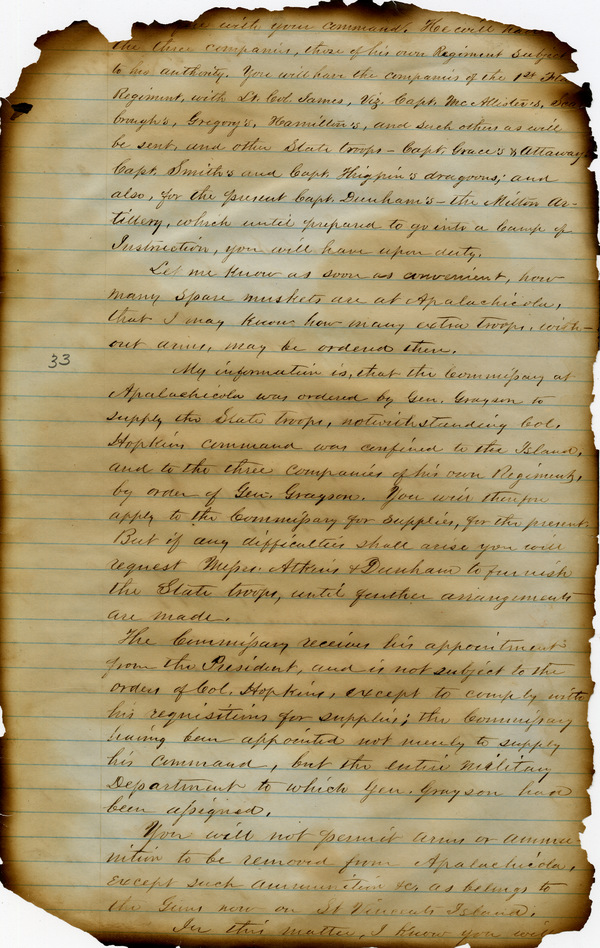 with your command. He will ha
the three companies, those of his own Regiment subject
to his authority. You will have the companies of the 1st Flo
Regiment, with Lt. Col. James, Viz. Capt. McAllister's, Sca
brough's, Gregory's, Hamilton's, and such others as will
be sent, and other State troops – Capt. Grace's & Attaway
Capt. Smith's and Capt. Thigpin's dragoons; and
also, for the present Capt. Dunham's – the Milton Ar-
tillery, which until prepared to go into a Camp of
Instruction, you will have upon duty.
Let me know as soon as convenient, how
many spare muskets are at Apalachicola,
that I may know how many extra troops, with-
out arms, may be ordered there.
33
My information is, that the Commissary at
Apalachicola was ordered by Gen. Grayson to
supply the State troops, notwithstanding Col.
Hopkins command was confined to the Island,
and to the three companies of his own Regiment,
by order of Gen. Grayson. You will therefore
apply to the Commissary for supplies, for the present.
But if any difficulties shall arise you will
request Messrs. Atkins & Dunham to furnish
the State troops, until further arrangements
are made.
The Commissary receives his appointment
from the President, and is not subject to the
orders of Col. Hopkins, except to comply with
his requisitions for supplies; the Commissary
having been appointed not merely to supply
his command, but the entire military
Department to which Gen. Grayson had
been assigned.
You will not permit arms or ammu
nition to be removed from Apalachicola,
except such ammunition &c. as belongs to
the Guns now on St Vincents Island.
In this matter, I know you wi